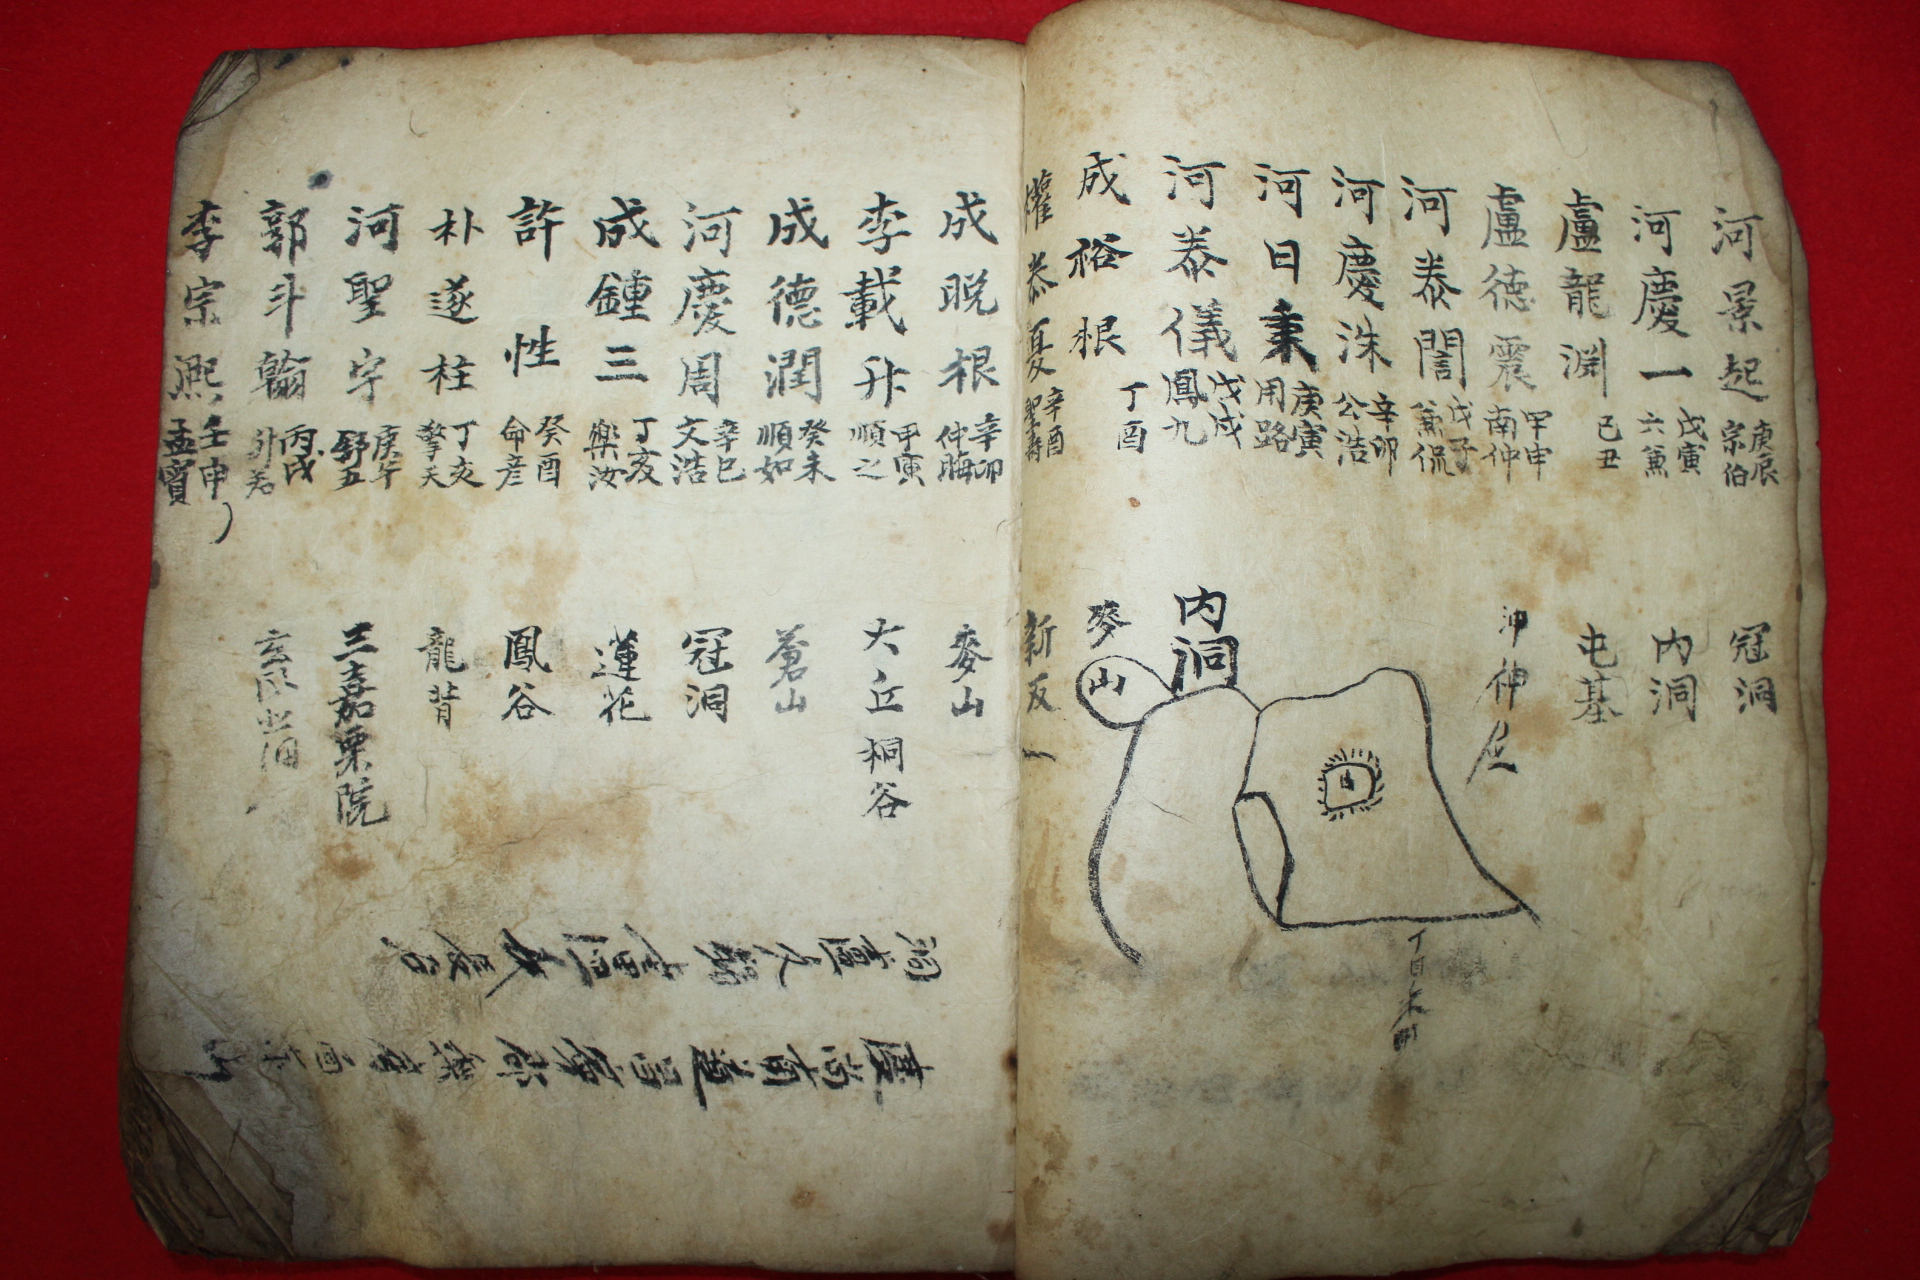 河景起 庚辰 宗伯 冠洞
河慶一 戊寅 六兼 内洞
盧龍淵 己丑 屯基
盧德震 甲申 南仲
河泰誾 戊子 兼侃
河慶洙 辛卯 公浩
河日秉 庚寅 用路
河泰儀 戊戌 鳳九 内洞
成裕根 丁酉 麥山
權泰夏 辛酉 聖壽 新反
成晩根 辛卯 仲晦 麥山
李載升 甲寅 順之 大丘桐谷
成德潤 癸未 順如 蒼山
河慶周 辛巳 文浩 冠洞
成鍾三 丁亥 樂汝 蓮花
許性 癸酉 命彦 鳳谷
朴遂柱 丁亥 擎天 龍背
河聖字 庚午 舒五 三嘉栗院
郭斗翰 丙戌
李宗熙 壬申 孟賓
慶尚南道昌寧郡